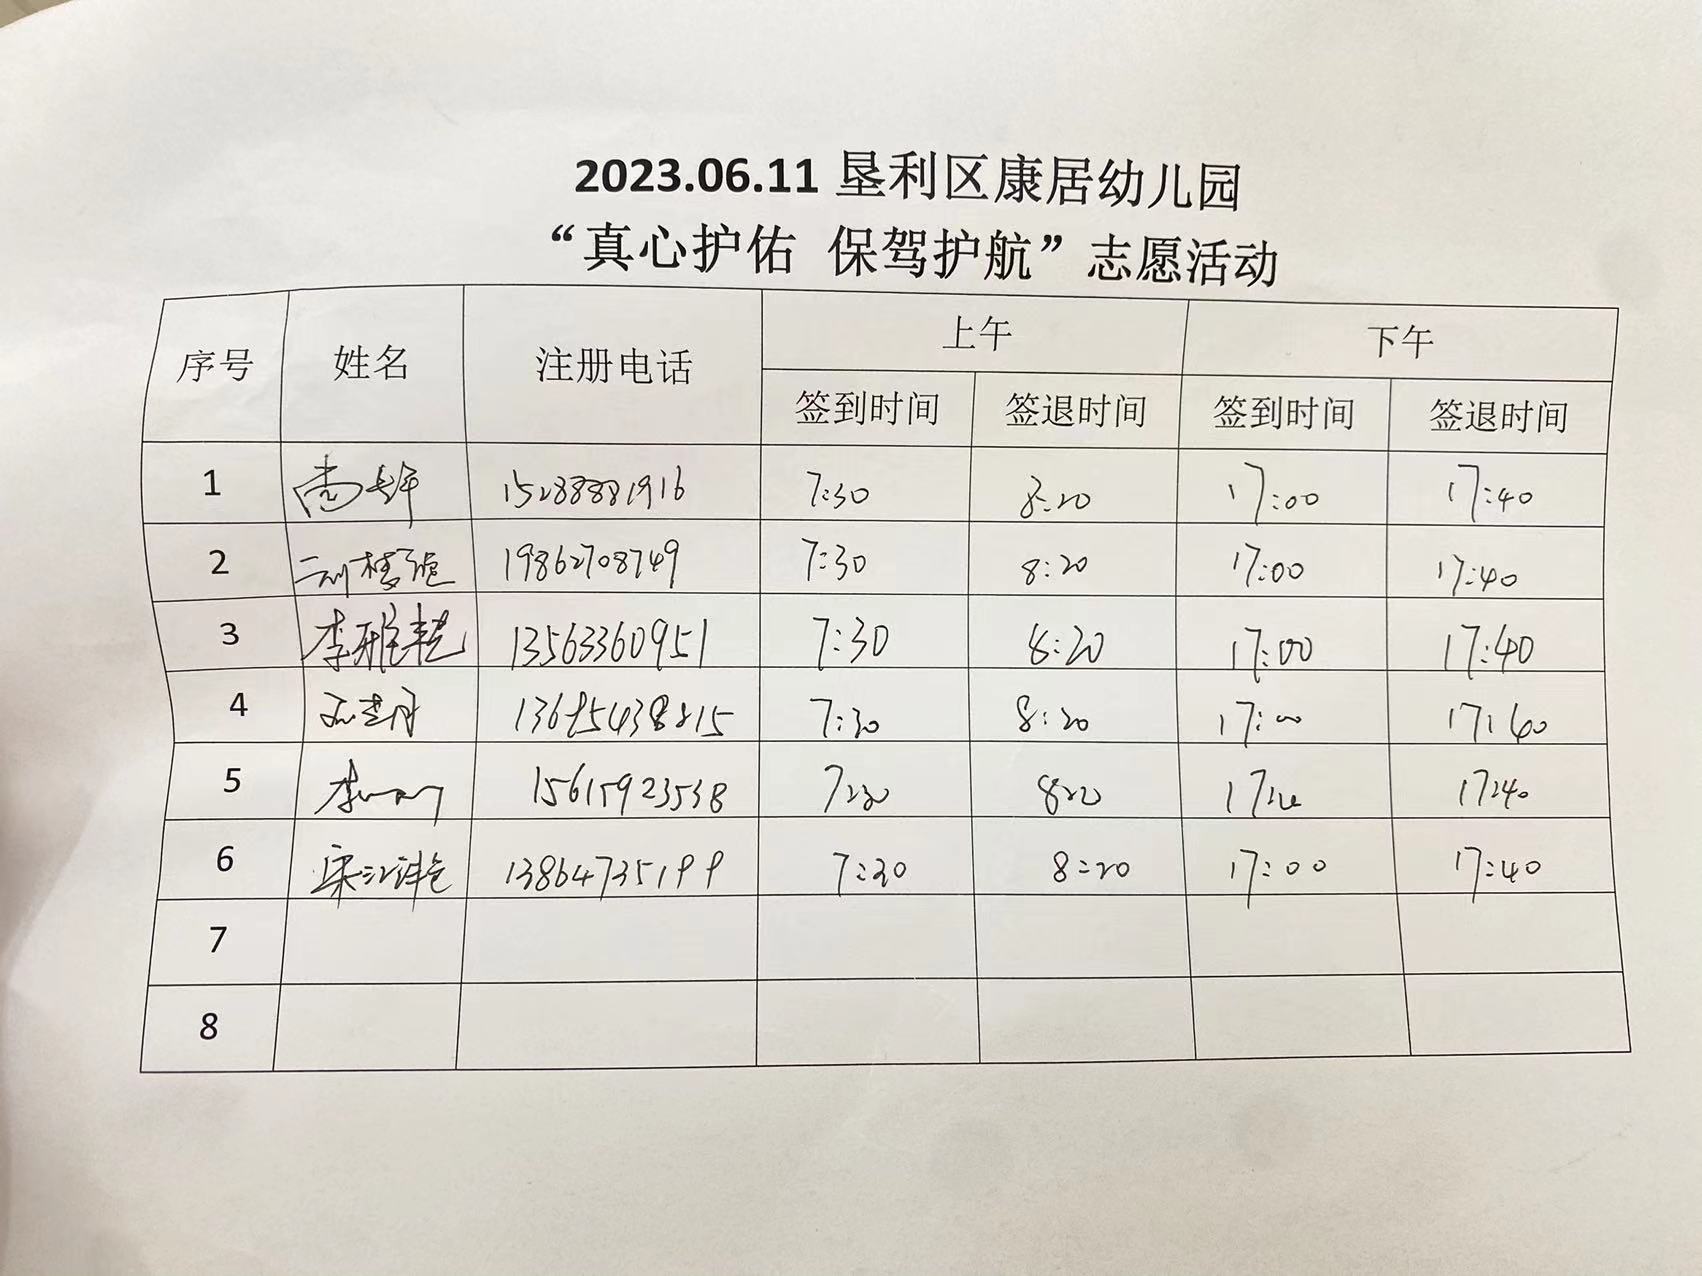 2023.06.11 垦利区康居幼儿园
“真心护佑 保驾护航”志愿活动
序号 姓名 注册电话 上午 下午
签到时间 签退时间 签到时间 签退时间
1 尚 15288881916 7:30 8:20 17:00 17:40
2 刘 19862708749 7:30 8:20 17:00 17:40
3 李雅艳 13563360951 7:30 8:20 17:00 17:40
4 7:30 8:20 17:00 17:40
5 李 15615923538 7:30 8:20 17:00 17:40
6 宋江艳 13864735199 7:30 8:20 17:00 17:40
7
8